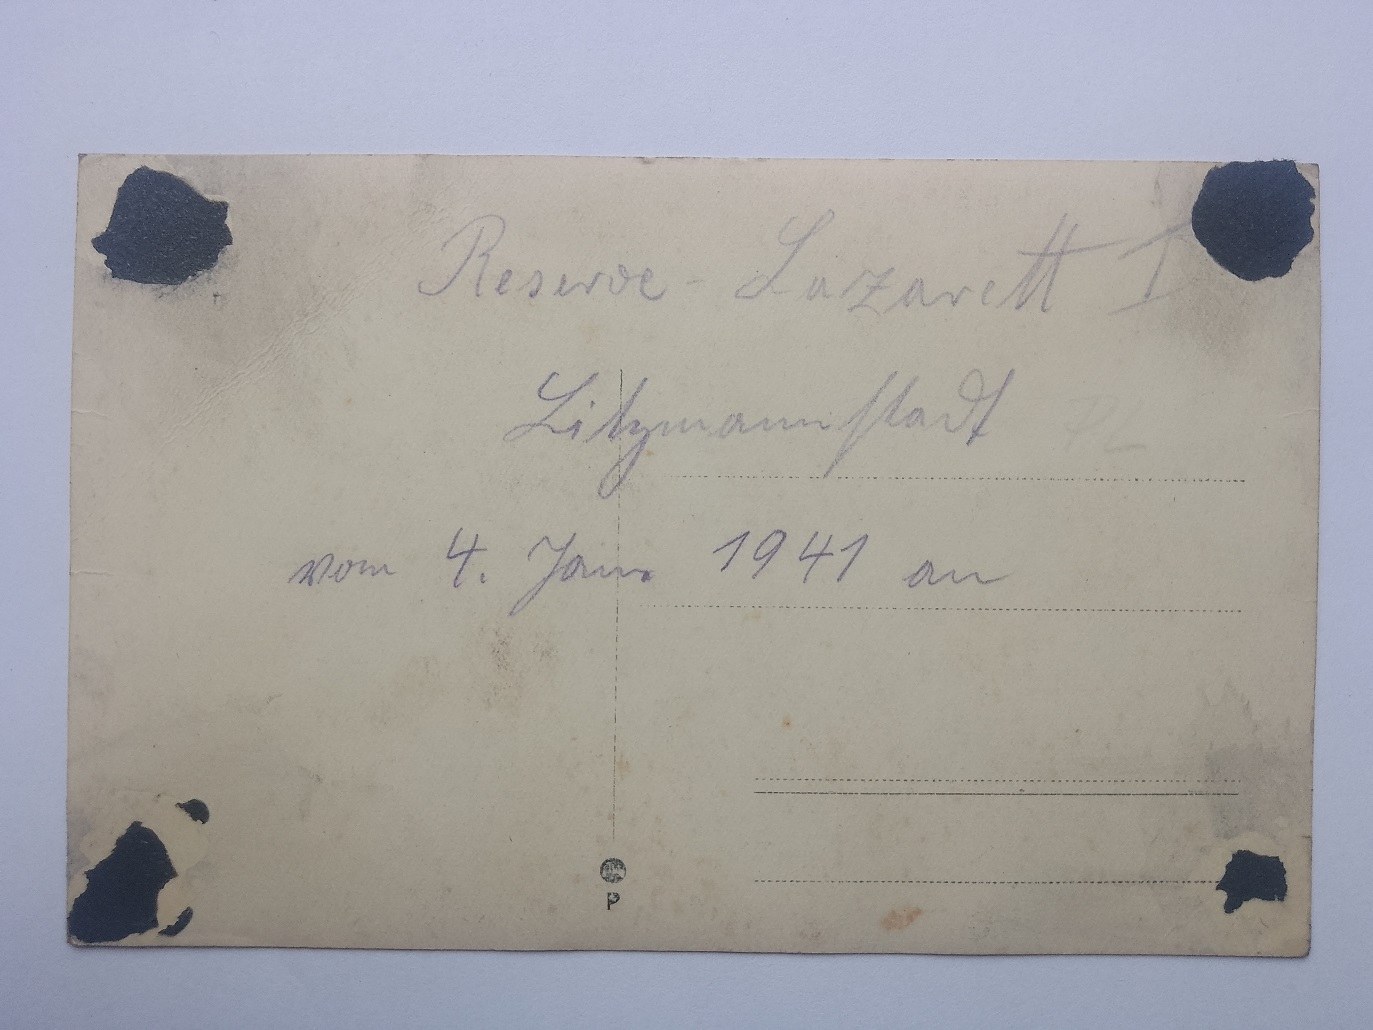 Reserve-Lazarett I
Litzmannstadt
vom 4. Jan. 1941 an
P